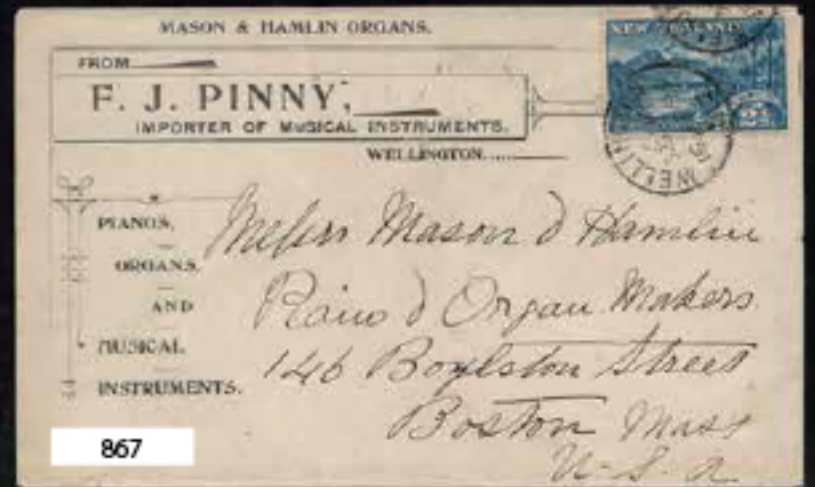 MASON & HAMLIN ORGANS.
FROM
F. J. PINNY,
IMPORTER OF MUSICAL INSTRUMENTS.
WELLINGTON......
NEW ZEALAND
2½
WELLIN
PIANOS,
ORGANS,
AND
MUSICAL
INSTRUMENTS.
Messrs Mason & Hamlin
Piano & Organ Makers
146 Boylston Street
Boston Mass
U.S.A.
867